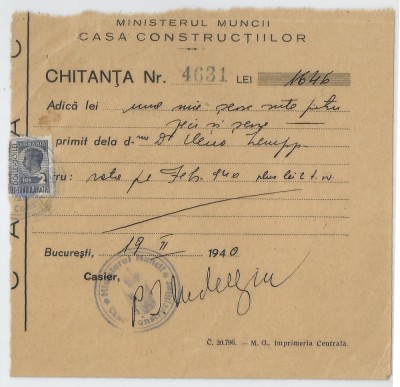 MINISTERUL MUNCII
CASA CONSTRUCȚIILOR
CHITANȚA Nr. 4631 LEI 1646
Adică lei una mie șase sute patru
zeci și șase
primit dela d-na Dr Elena
ru: rata pe Feb. 940 plus lei 2 t.
București, 19 II 1940
Casier,
Ministerul Muncii
Č. 20.796. — M. O., Imprimeria Centrală.